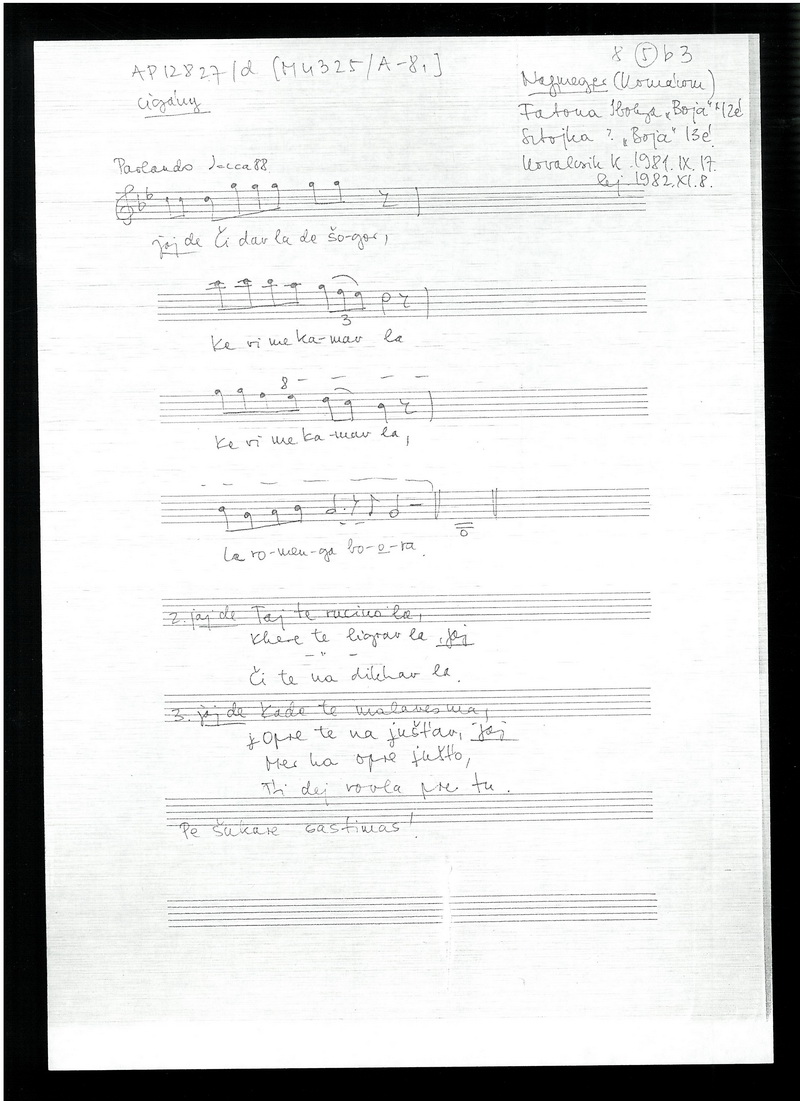 AP12827/d [MU325/A-8,]
8 ⑤ b 3
cigány
Nagymegyer (Komárom)
Fatona Ibolya „Boja" 12é
Sztojka ? „Boja" 13é
Kovalcsik K. 1981.IX.17.
lej. 1982.XI.8.
Parlando 88
jaj de Či dav la de šo-gor,
3
Ke vi me ka-mav la
8
Ke vi me ka-mav la,
La ro-men-ga bo-o-ra.
2. jaj de Taj te la,
Khere te ligrav la jaj
- " -
Či te na dikhav la.
3. jaj de Kade te malaves ma,
Opre te na juštav, jaj
Mer ha opre
Ti dej rovla pre tu.
Pe šukare sastimas!